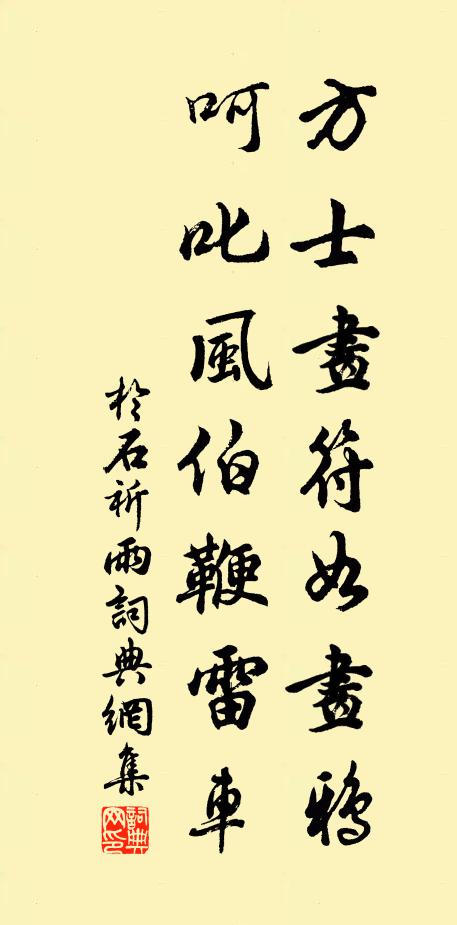 方士畫符如畫鴉
呵叱風伯鞭雷車
於石祈雨詞典網集
詞典网印